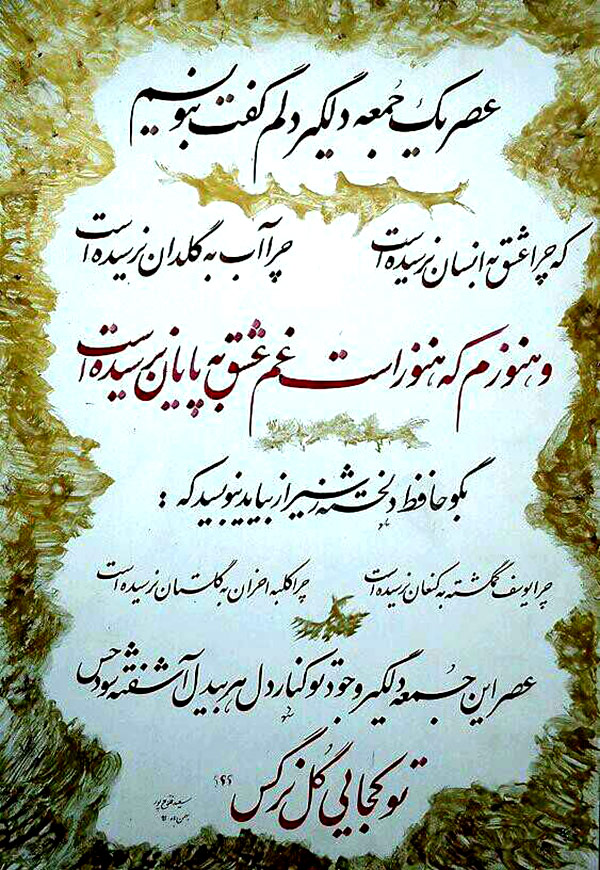 عصر یک جُمعه دلگیر دلم گفت بنویسم
که چرا عشق به انسان نرسیده است چرا آب به گلدان نرسیده است
و هنوزم که هنوز است غم عشق به پایان نرسیده است
بگو حافظ دلخسته ز شیراز بیاید بنویسد که :
چرا یوسف گمگشته به کنعان نرسیده است چرا کلبه احزان به گلستان نرسیده است
عصر این جُمعه دلگیر وجود تو کنار دل هر بیدل آشفته شود حس
تو کجایی گُل نرگس ؟؟
سعید
بهمن ماه ۹۱